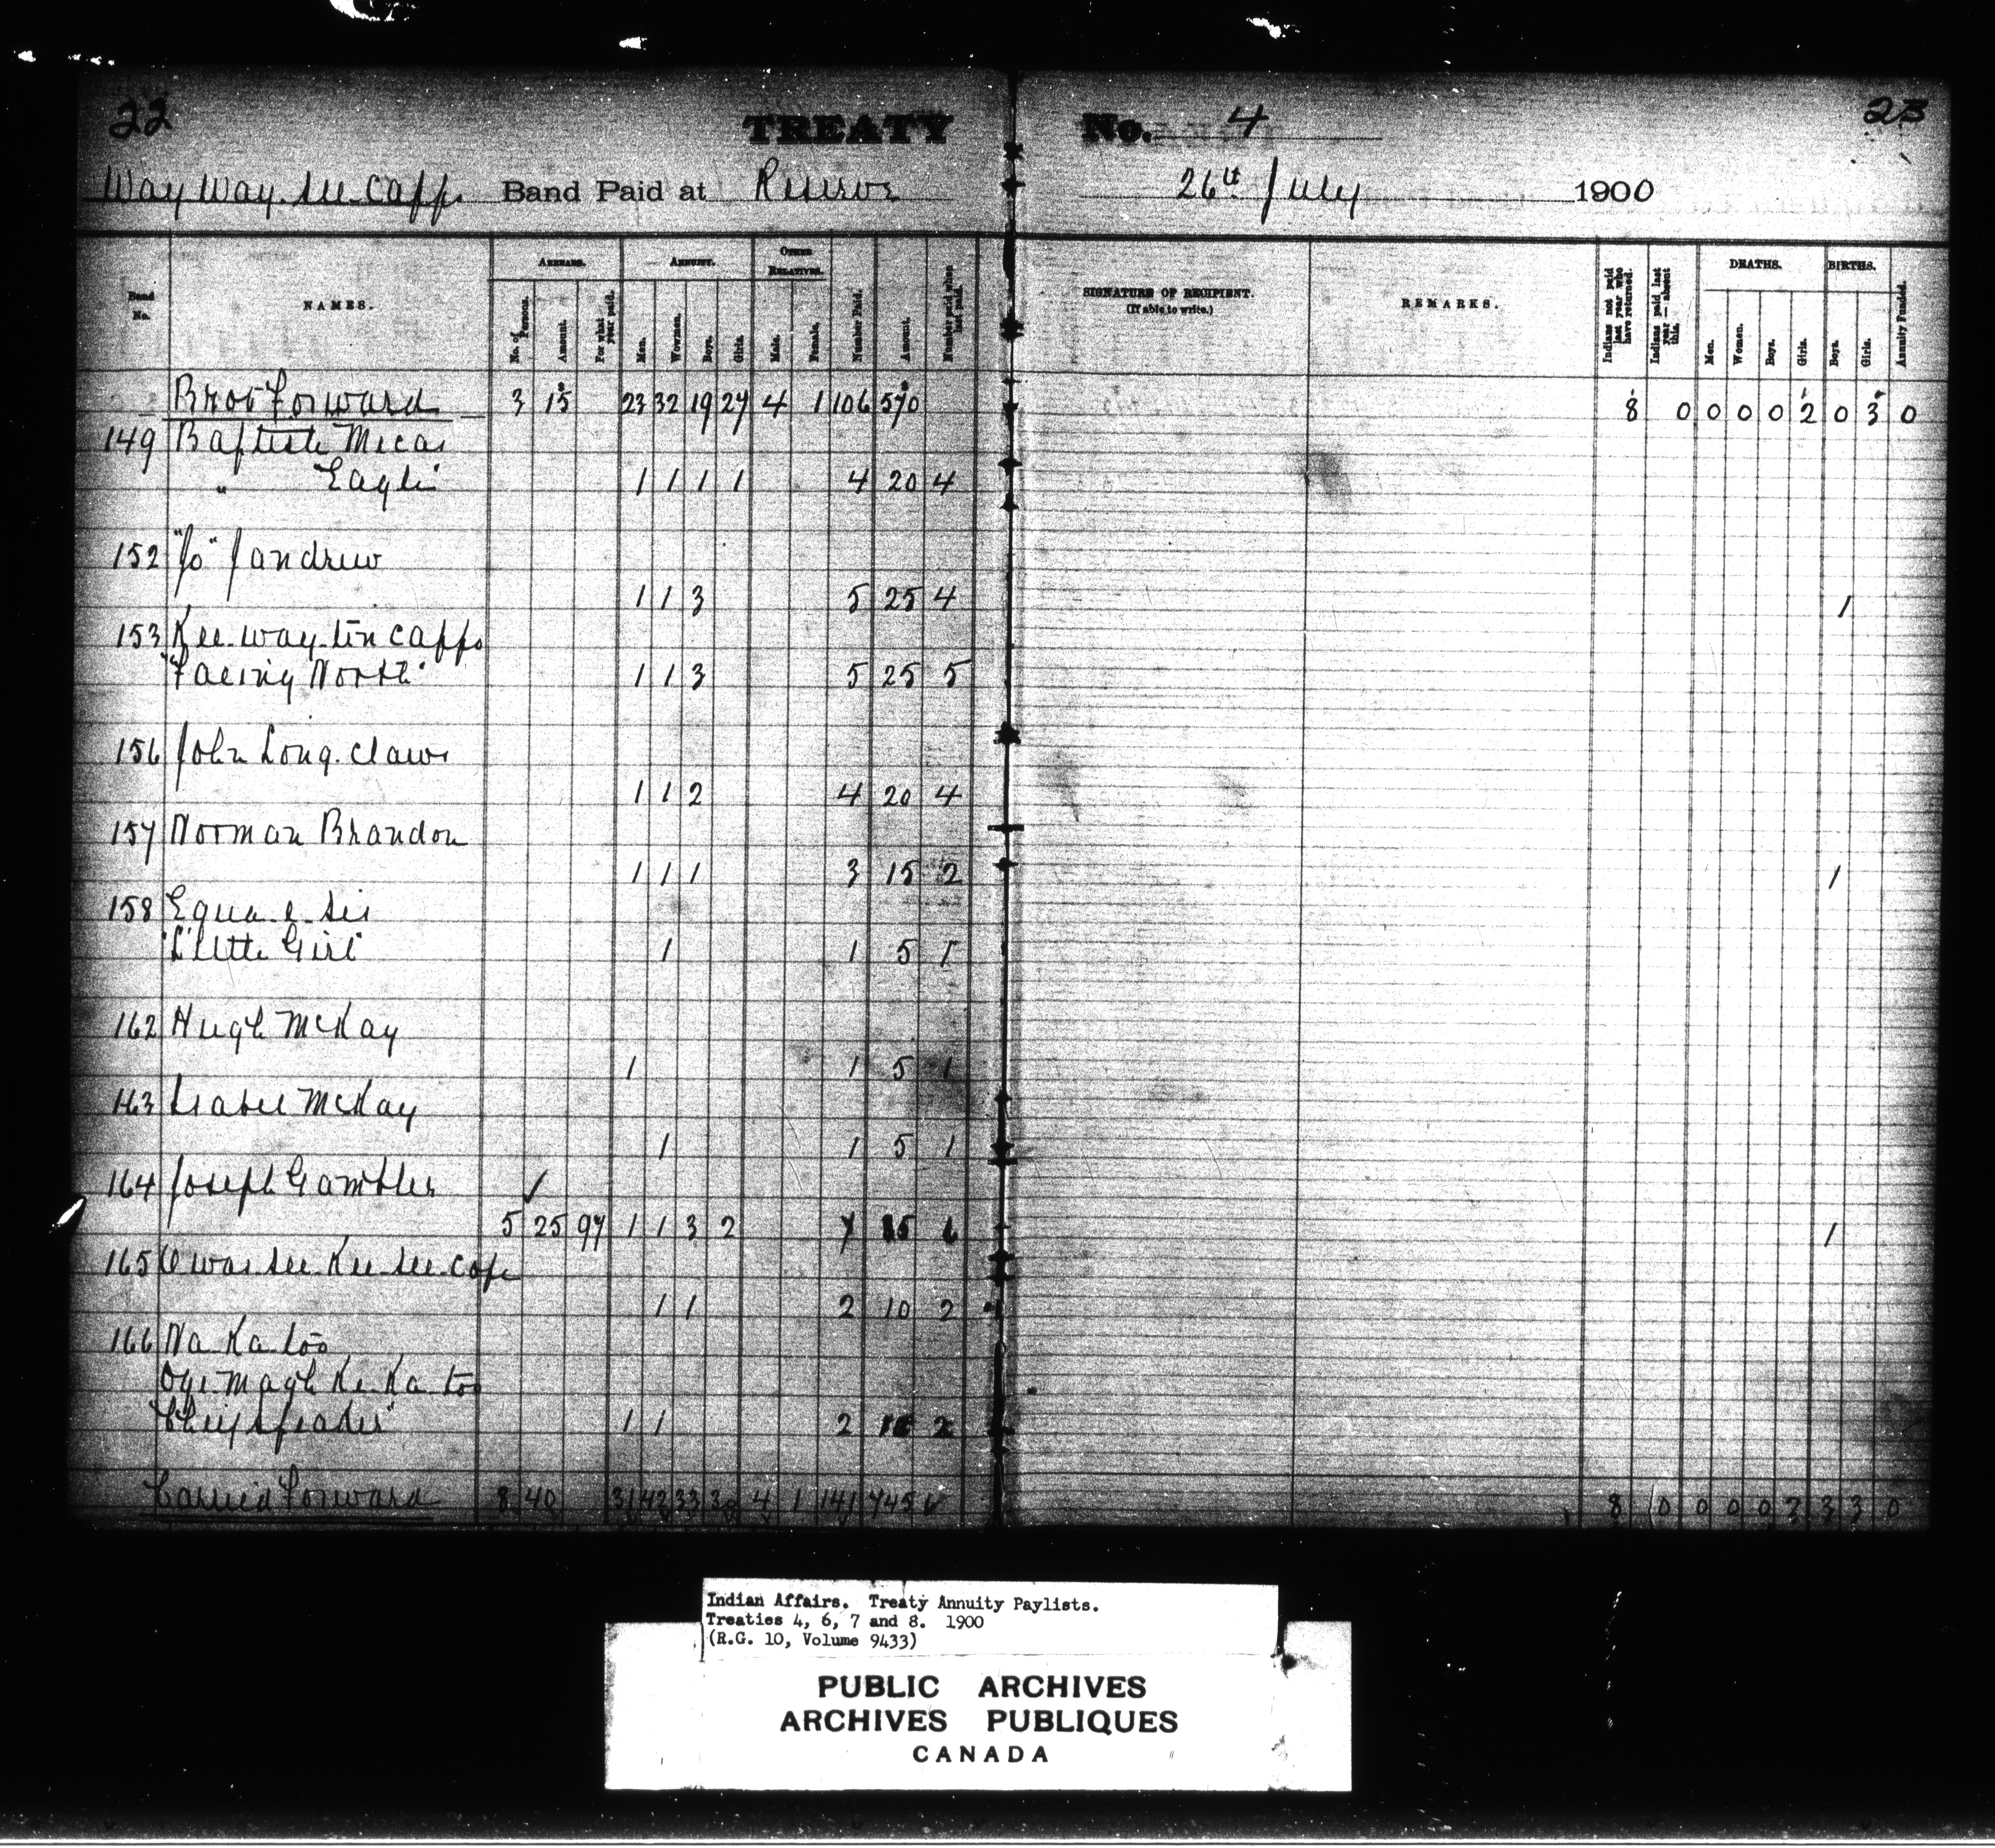 22
TREATY No. 4
23
Way Way see Capps Band Paid at Reserve 26th July 1900
Band No.
NAMES.
ARREARS.
No. of Persons.
Amount.
For what year paid.
ANNUITY.
Men.
Wowmen.
Boys.
Girls.
OTHER RELATIVES.
Male.
Female.
Number Paid.
Amount.
Number paid when last paid.
SIGNATURE OF RECIPIENT.
(If able to write.)
REMARKS.
Indians not paid last year who have returned.
Indians paid last year — absent this.
DEATHS.
Men.
Women.
Boys.
Girls.
BIRTHS.
Boys.
Girls.
Annuity Funded.
Brot Forward 3 15 23 32 19 27 4 1 106 570 8 0 0 0 0 2 0 3 0
149 Baptiste Mecas
" Eagle 1 1 1 1 4 20 4
152 "Jo" Jandrew
1 1 3 5 25 4 1
153 Kee-way-tin capps
"Facing North" 1 1 3 5 25 5
156 John Long. claws
1 1 2 4 20 4
157 Norman Brandon
1 1 1 3 15 2 1
158 Equa-e-sis
"Little Girl" 1 1 5 1
162 Hugh McKay
1 1 5 1
163 McKay
1 1 5 1
164 Joseph Gambler ✓
5 25 97 1 1 3 2 7 6 1
165 Kee-see-cape
1 1 2 10 2
166 Na-Ka-too
Oge-magh-Ke-Ka-too
1 1 2 2
Carried Forward 8 40 31 42 33 30 4 1 141 745 8 0 0 0 0 2 3 3 0
Indian Affairs. Treaty Annuity Paylists.
Treaties 4, 6, 7 and 8. 1900
(R.G. 10, Volume 9433)
PUBLIC ARCHIVES
ARCHIVES PUBLIQUES
CANADA